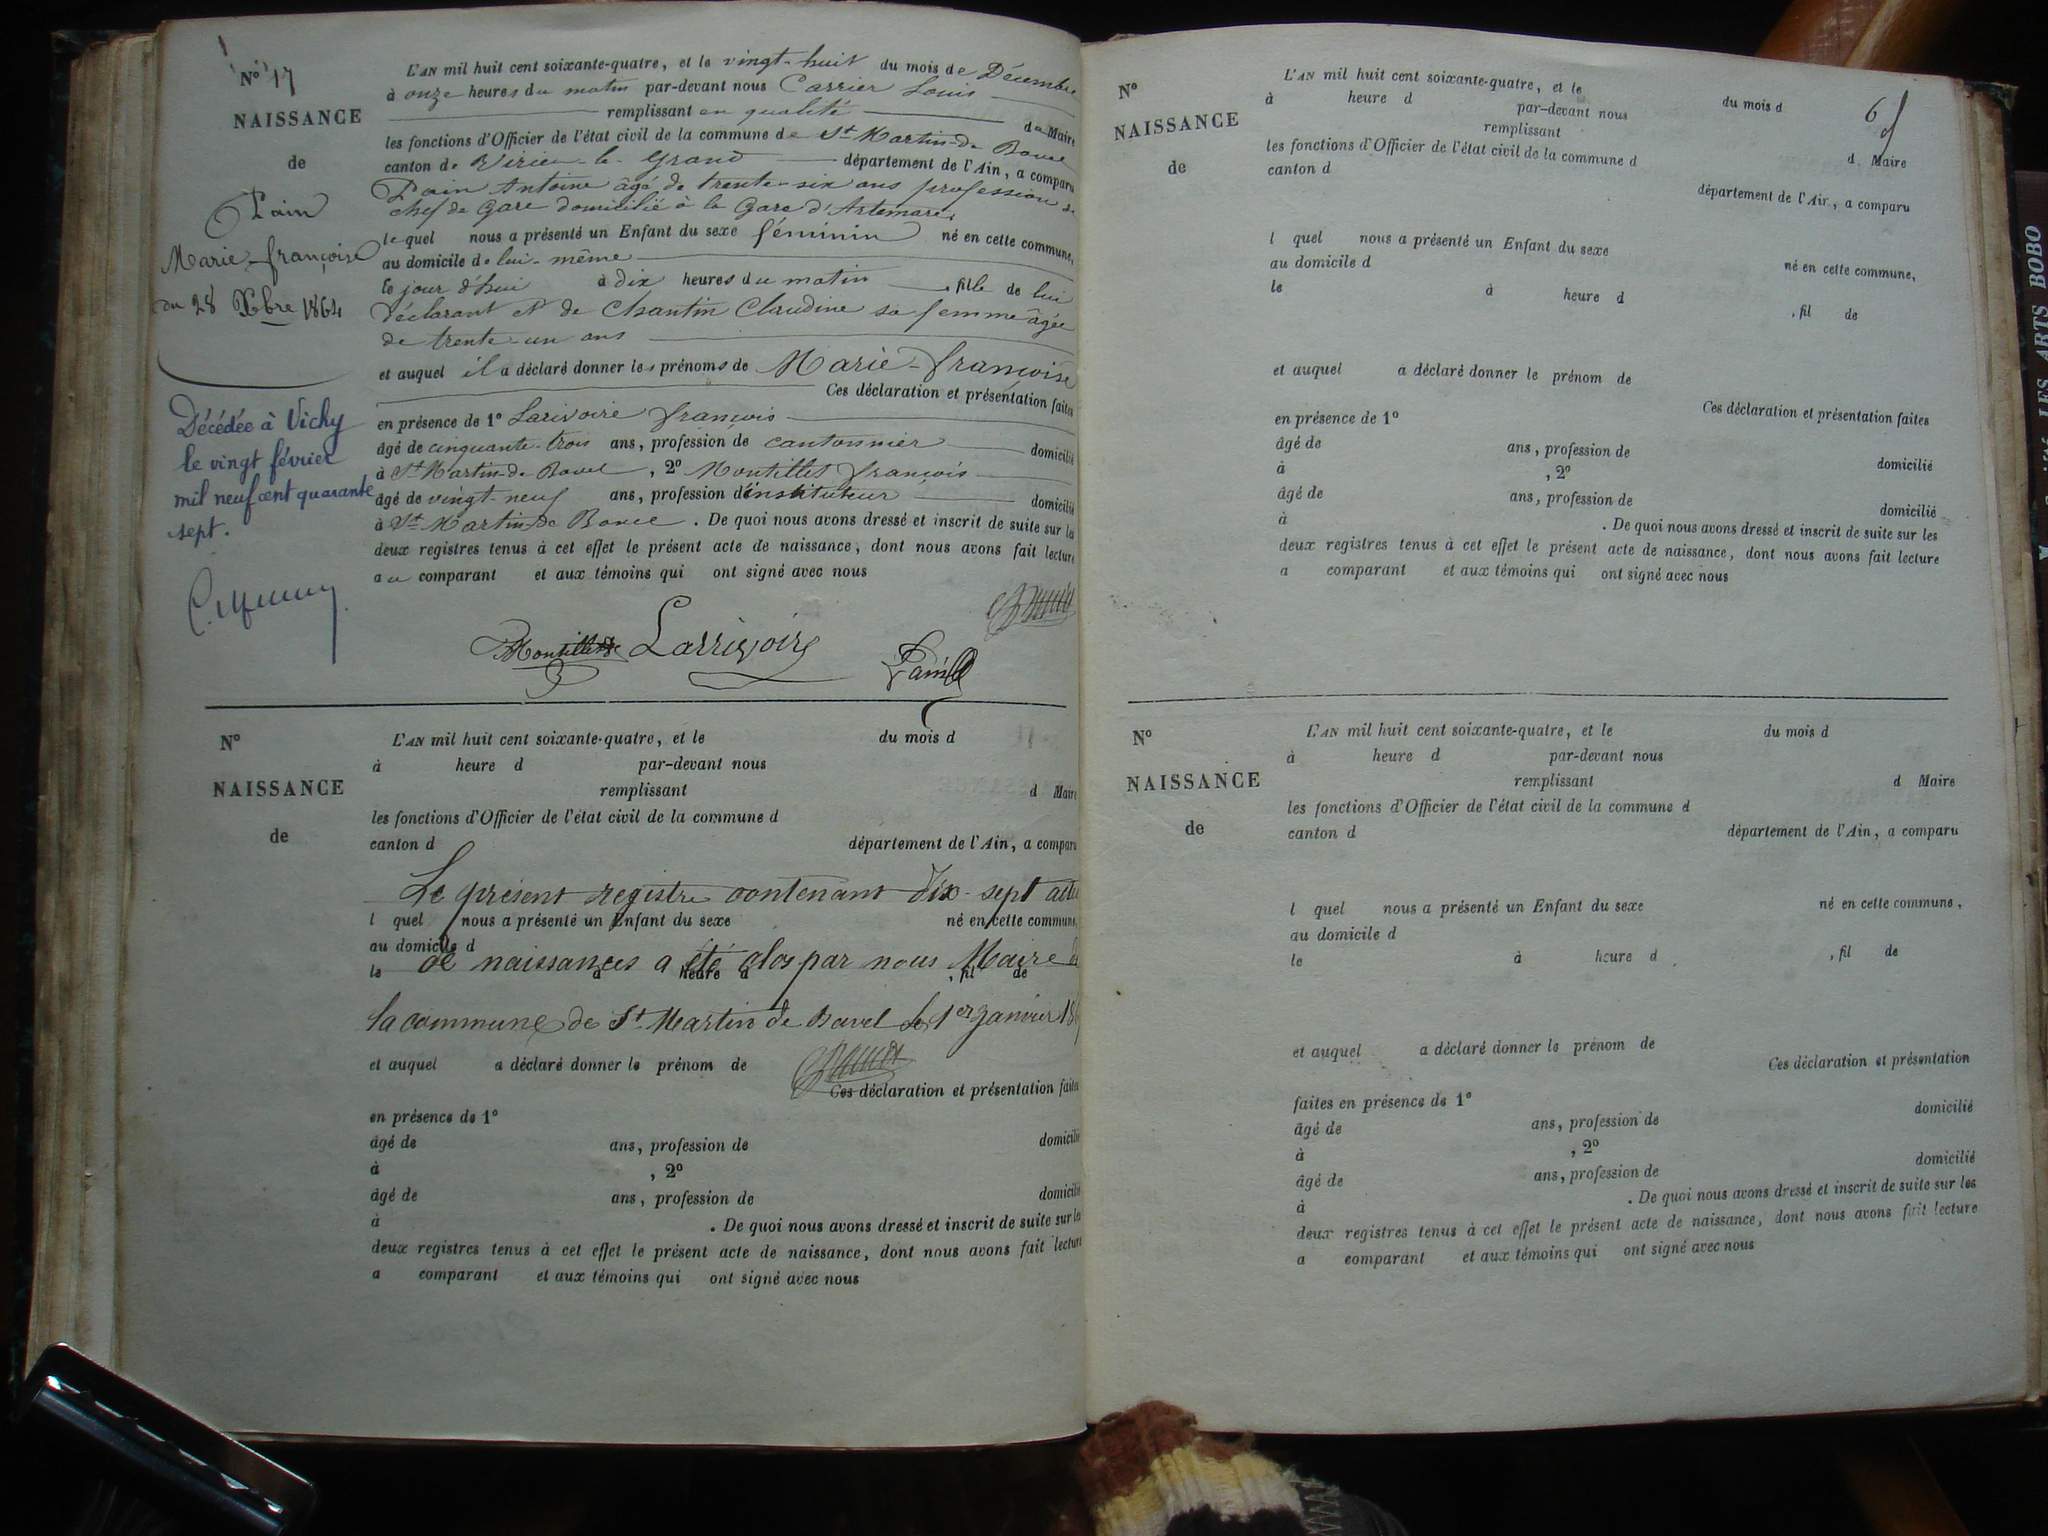 N° 17
NAISSANCE
de
Pain
Marie-françoise
du 28 Xbre 1864
Décédée à Vichy
le vingt février
mil neuf cent quarante
sept.
L'AN mil huit cent soixante-quatre, et le vingt-huit du mois de Décembre
à onze heures du matin par-devant nous Carrier Louis
remplissant en qualité de Maire
les fonctions d'Officier de l'état civil de la commune de St Martin-de Bavel
canton de Virieu-le-Grand département de l'Ain, a comparu
Pain Antoine âgé de trente-six ans profession de
chef de Gare domicilié à la Gare d'Artemare,
lequel nous a présenté un Enfant du sexe féminin né en cette commune,
au domicile de lui-même
le jour d'hui à dix heures du matin , fille de lui
déclarant et de Chantin Claudine sa femme âgée
de trente-un ans
et auquel il a déclaré donner les prénoms de Marie-françoise
Ces déclaration et présentation faites
en présence de 1° Larivoire françois
âgé de cinquante-trois ans, profession de cantonnier domicilié
à St Martin-de Bavel , 2° Montillet françois
âgé de vingt-neuf ans, profession d'instituteur domicilié
à St Martin-de Bavel . De quoi nous avons dressé et inscrit de suite sur les
deux registres tenus à cet effet le présent acte de naissance, dont nous avons fait lecture
au comparant et aux témoins qui ont signé avec nous
Montillet Larrivoire Pain
N°
NAISSANCE
de
L'AN mil huit cent soixante-quatre, et le du mois d
à heure d par-devant nous
remplissant d Maire
les fonctions d'Officier de l'état civil de la commune d
canton d département de l'Ain, a comparu
Le présent registre contenant dix-sept actes
l quel nous a présenté un Enfant du sexe né en cette commune,
au domicile d
de naissances a été clos par nous Maire de
le à heure d , fil de
la commune de St Martin de Bavel le 1er janvier 186
et auquel a déclaré donner le prénom de
Ces déclaration et présentation faites
en présence de 1°
âgé de ans, profession de domicilié
à , 2°
âgé de ans, profession de domicilié
à . De quoi nous avons dressé et inscrit de suite sur les
deux registres tenus à cet effet le présent acte de naissance, dont nous avons fait lecture
a comparant et aux témoins qui ont signé avec nous
6
N°
NAISSANCE
de
L'AN mil huit cent soixante-quatre, et le du mois d
à heure d par-devant nous
remplissant d Maire
les fonctions d'Officier de l'état civil de la commune d
canton d département de l'Ain, a comparu
l quel nous a présenté un Enfant du sexe né en cette commune,
au domicile d
le à heure d , fil de
et auquel a déclaré donner le prénom de
Ces déclaration et présentation faites
en présence de 1°
âgé de ans, profession de domicilié
à , 2°
âgé de ans, profession de domicilié
à . De quoi nous avons dressé et inscrit de suite sur les
deux registres tenus à cet effet le présent acte de naissance, dont nous avons fait lecture
a comparant et aux témoins qui ont signé avec nous
N°
NAISSANCE
de
L'AN mil huit cent soixante-quatre, et le du mois d
à heure d par-devant nous
remplissant d Maire
les fonctions d'Officier de l'état civil de la commune d
canton d département de l'Ain, a comparu
l quel nous a présenté un Enfant du sexe né en cette commune,
au domicile d
le à heure d , fil de
et auquel a déclaré donner le prénom de
Ces déclaration et présentation
faites en présence de 1°
âgé de ans, profession de domicilié
à , 2°
âgé de ans, profession de domicilié
à . De quoi nous avons dressé et inscrit de suite sur les
deux registres tenus à cet effet le présent acte de naissance, dont nous avons fait lecture
a comparant et aux témoins qui ont signé avec nous
LES ARTS BOBO